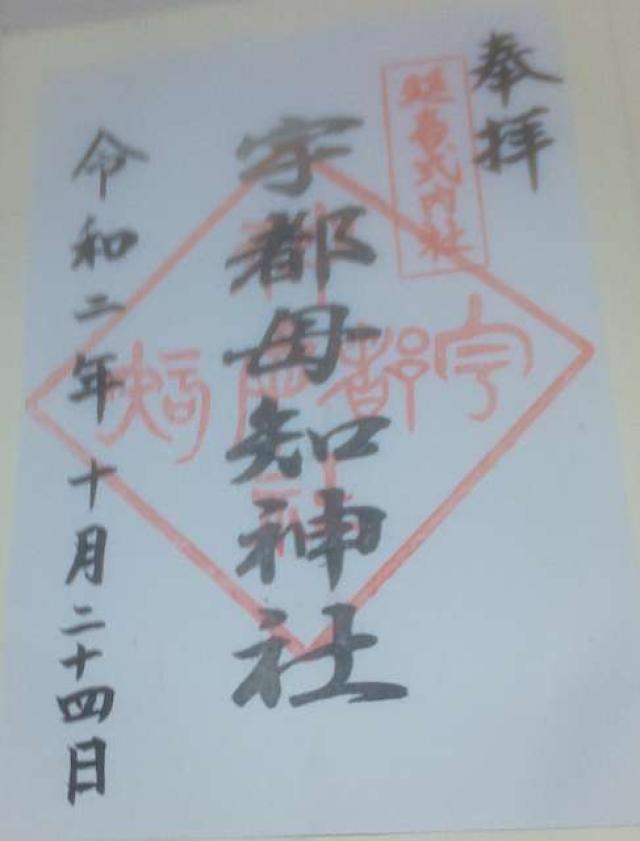 奉拝
延喜式内社
宇都母知神社
令和二年十月二十四日